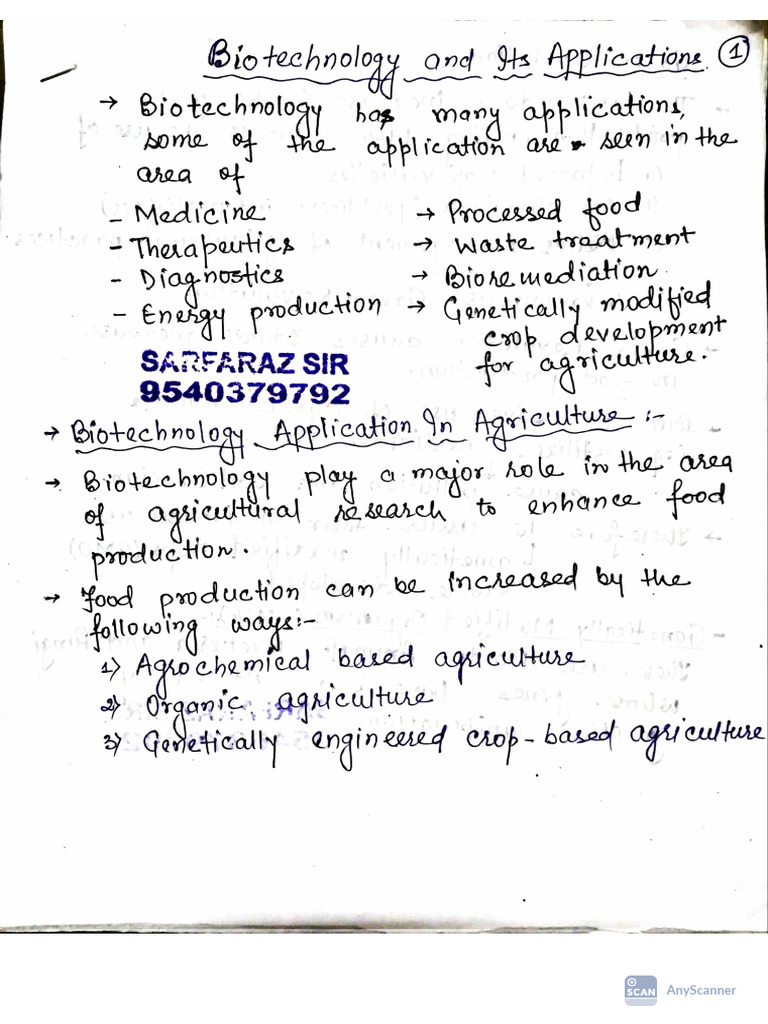 Biotechnology and Its Applications. 1
→ Biotechnology has many applications,
some of the application are seen in the
area of
- Medicine → Processed food
- Therapeutics → Waste traatment
- Diagnostics → Bioremediation.
- Energy production → Genetically modified
crop development
for agriculture.
SARFARAZ SIR
9540379792
→ Biotechnology Application In Agriculture :-
→ Biotechnology play a major role in the area
of agricultural research to enhance food
production.
→ Food production can be increased by the
following ways:-
1) Agrochemical based agriculture
2) Organic agriculture
3) Genetically engineered crop-based agriculture
SCAN AnyScanner